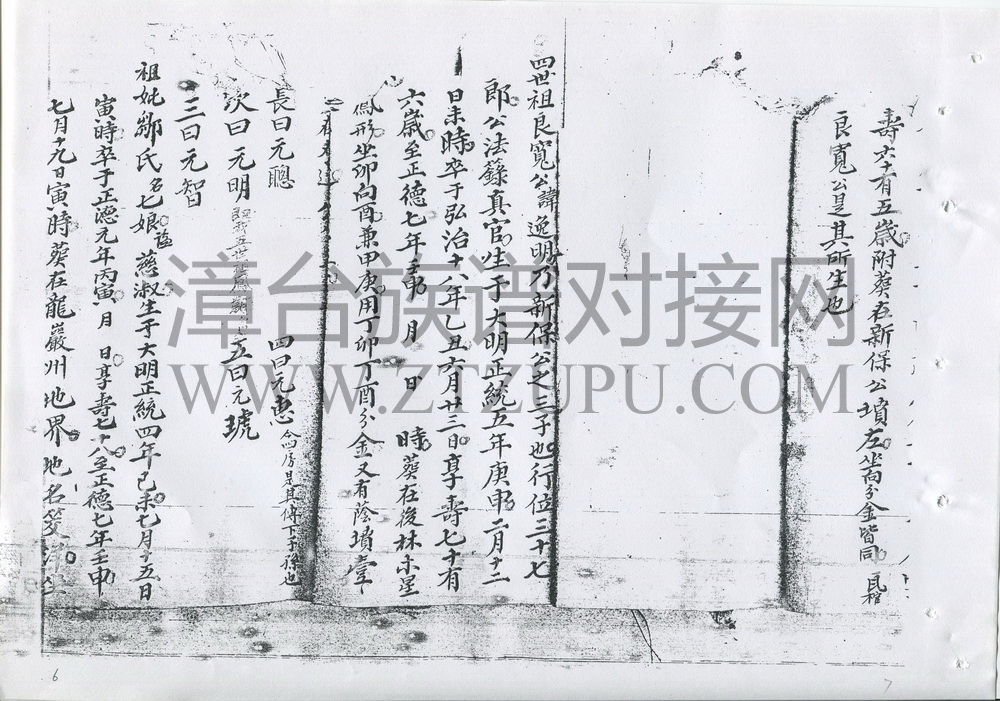 壽六十有五歲附葬在新保公墳左坐向分金皆同
良寬公是其所生也
四世祖良寬公諱逸明乃新保公之三子也行位三十七
郎公法籙真官生于大明正統五年庚申二月十二
日未時卒于弘治十八年乙丑六月廿三日享壽七十有
六歲至正德七年壬申 月 日 時葬在後林赤星
坐卯向酉兼甲庚用丁卯丁酉分金又有蔭墳壹
長曰元聰 四曰元惠 房是其傳下子孫也
次曰元明 五曰元琥
三曰元智
祖妣鄒氏名七娘謚慈淑生于大明正統四年己未七月十五日
寅時卒于正德元年丙寅 月 日享壽七十八至正德七年壬申
七月十九日寅時葬在龍巖州地界地名
漳台族谱对接网
WWW.ZTZUPU.COM
6
7